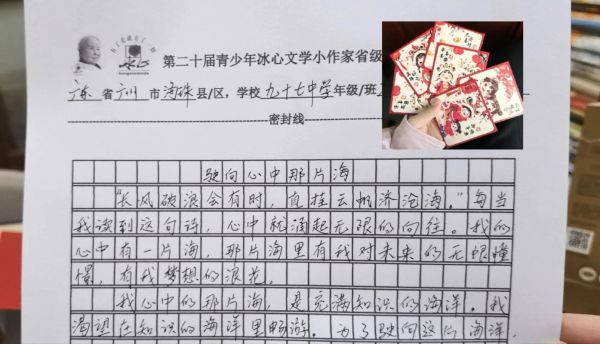 第二十届青少年冰心文学小作家省级
广东省广州市海珠县/区,学校九十七中学年级/班
密封线
驶向心中那片海
“长风破浪会有时,直挂云帆济沧海。”每当
我读到这句诗,心中就涌起无限的向往。我的
心中有一片海,那片海里有我对未来的无限憧
憬,有我梦想的浪花。
我心中的那片海,是充满知识的海洋。我
渴望在知识的海洋里畅游。为了驶向这片海洋,